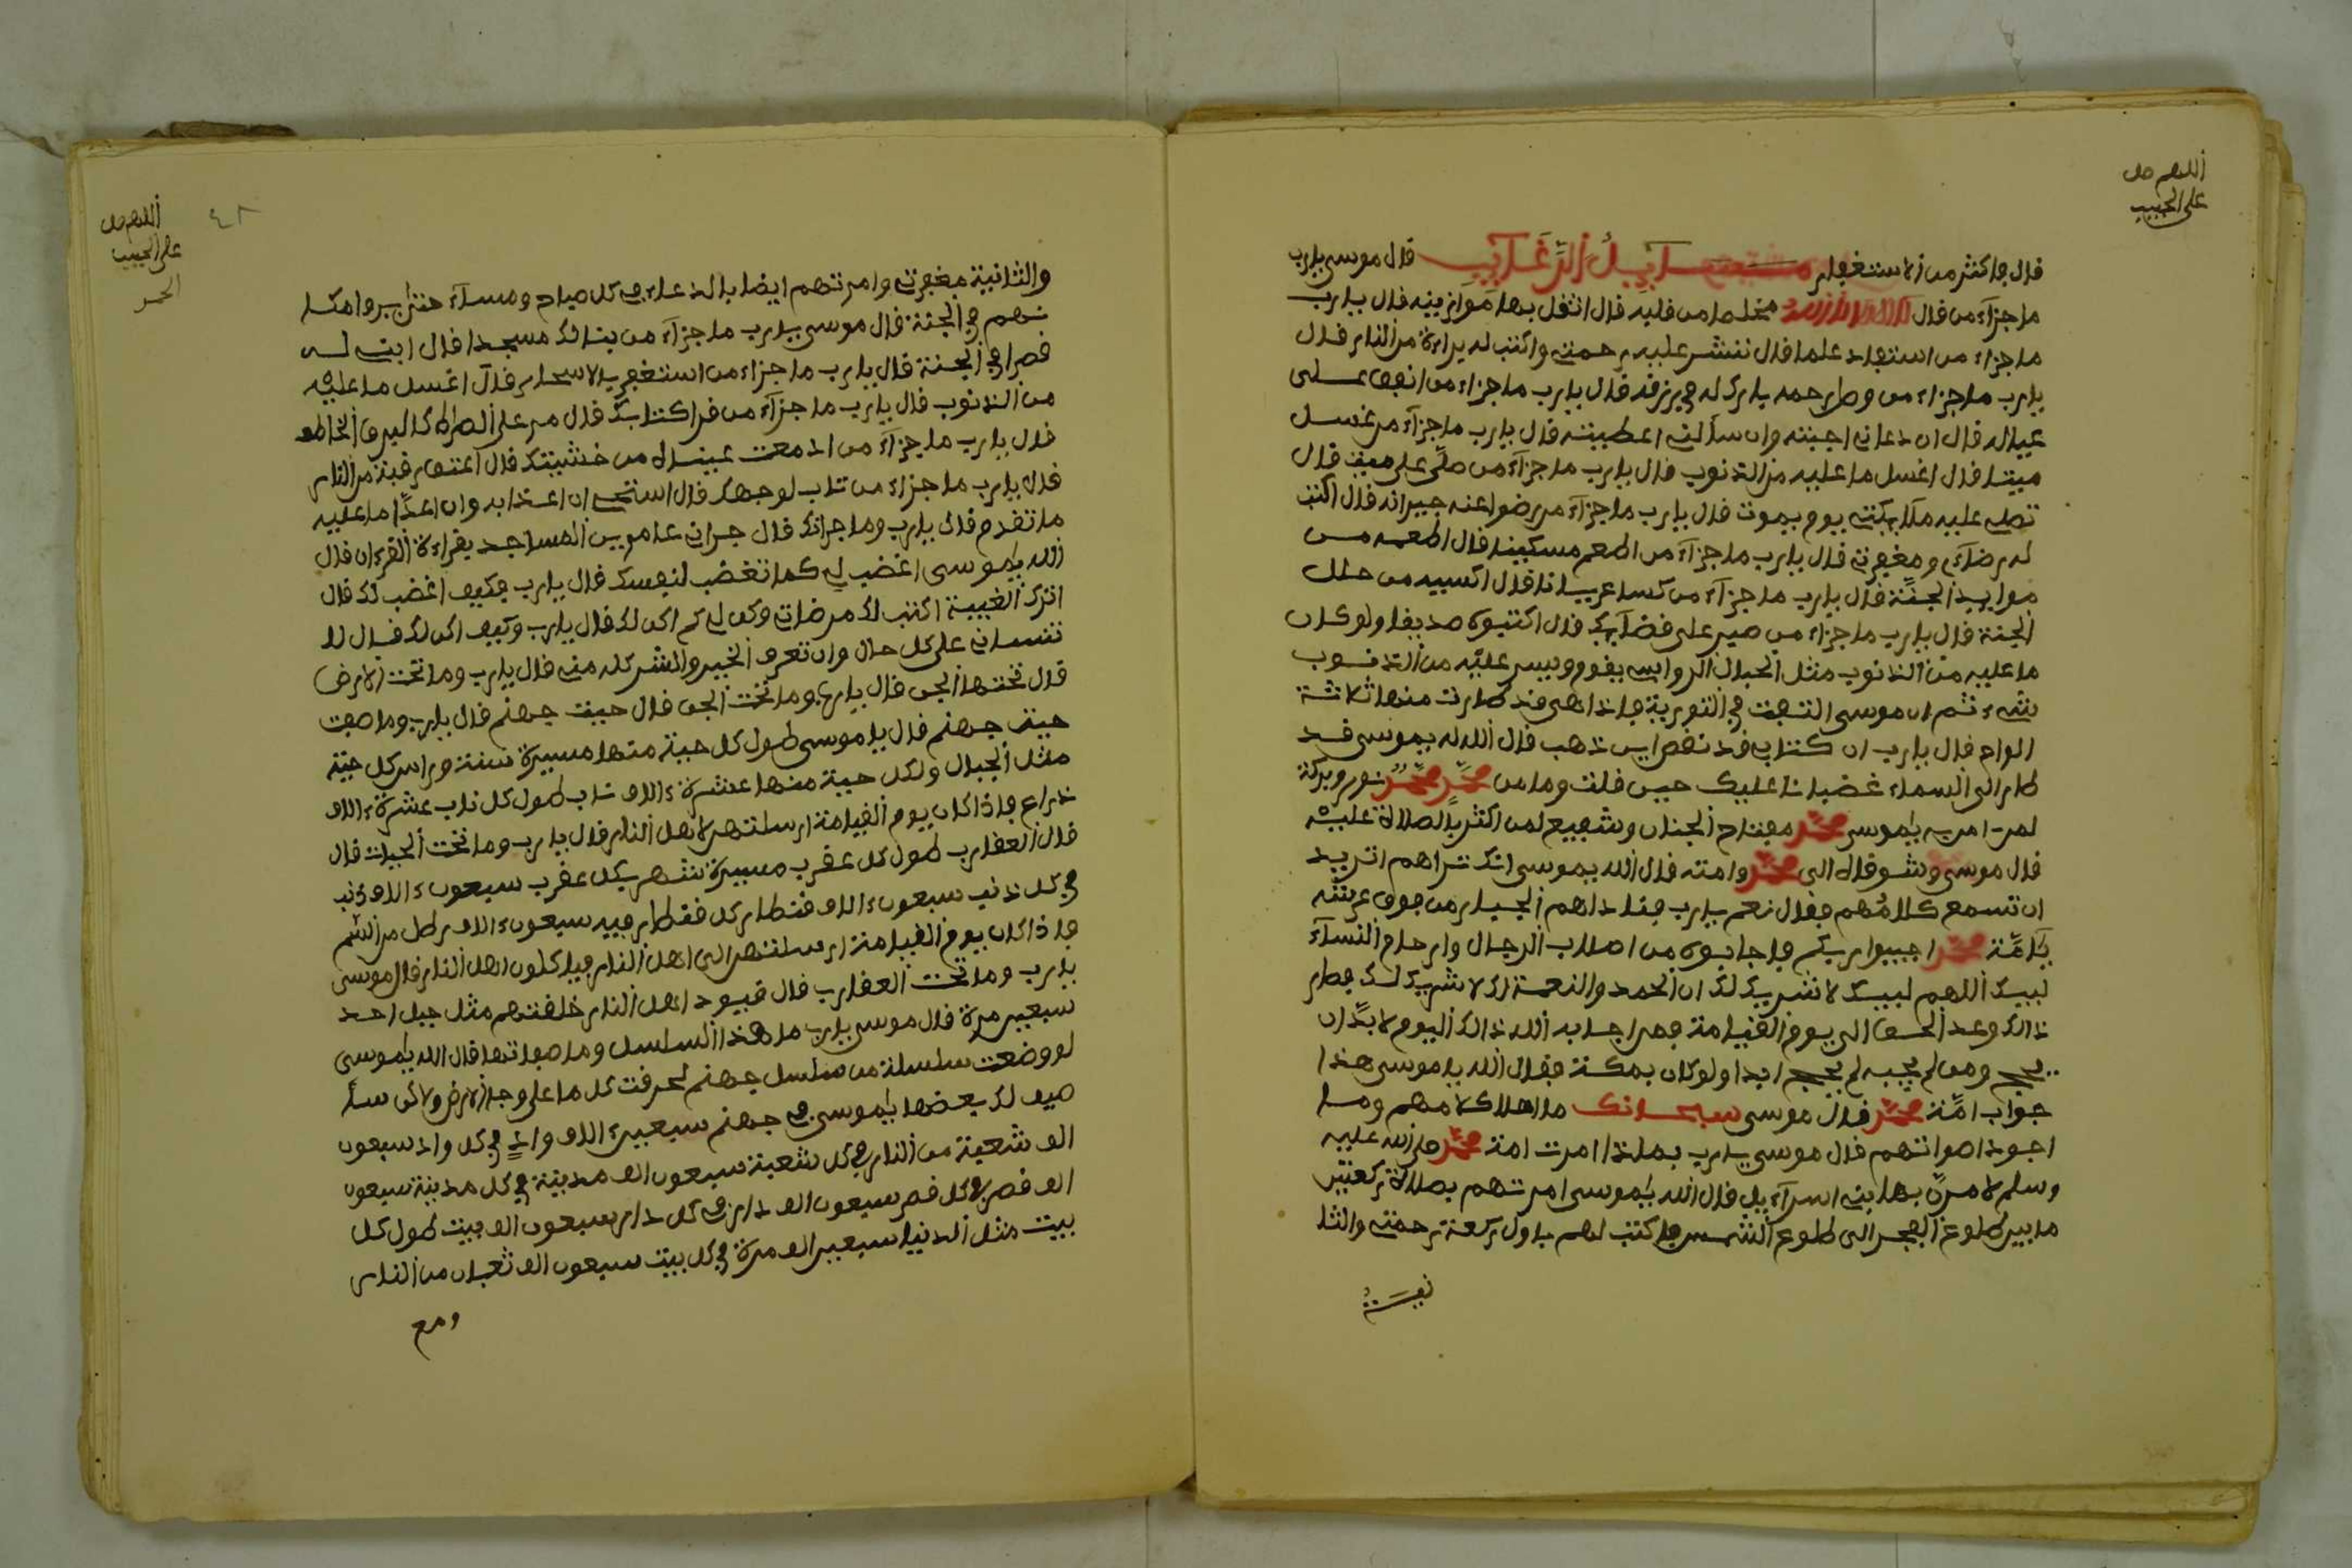 اللهم صل
على الحبيب
قال فاكثر من الاستغفار مسايل الرغايب قال موسى يارب
ما جزآء من قال مخلصا من قلبه قال اثقل بها موازينه قال يارب
ما جزاء من استفاد علما قال ننشر عليه رحمتي واكتب له براءة من النار قال
يارب ما جزاء من وصل رحمه بارك له في رزقه قال يارب ما جزاء من انفق على
عياله قال ان دعاني اجبته وان سألني اعطيته قال يارب ما جزآء من غسل
ميتا قال اغسل ما عليه من الذنوب قال يارب ما جزآء من صلّى على ميت قال
تصلي عليه ملايكتي يوم يموت قال يارب ما جزآء من رضوا عنه جيرانه قال اكتب
له رضآءي ومغفرتي قال يارب ما جزآء من اطعم مسكينا قال اطعمه من
موايد الجنّة قال يارب ما جزآء من كسا عريانا قال اكسيه من حلل
الجنة قال يارب ما جزاء من صبر على قضآيك قال اكتبوه صديقا ولو كان
ما عليه من الذنوب مثل الجبال الرواسي يقوم وليس عليّه من الذنوب
شيء ثم ان موسى التفت في التورية فاذا هي قد طارت منها ثلاثة
الواح قال يارب ان كتابي قد نقص اين ذهب قال الله له يموسى قد
طار الى السماء غضبانا عليك حين قلت وما من محمد محمد نور وبركة
لمن امن به ياموسى محمد مفتاح الجنان وشفيع لمن اكثر بالصلاة عليه
قال موسى وشوقاه الى محمد وامته قال الله يموسى انك تراهم اتريد
ان تسمع كلامُهم فقال نعم يارب فناداهم الجبار من فوق عرشه
يآمّة محمد اجيبوا ربكم فاجابوه من اصلاب الرجال وارحام النسآء
لبيك اللهم لبيك لا شريك لك ان الحمد والنعمة لك لا شريك لك فصار
ذالك وعد الحق الى يوم القيامة فمن اجابه الله ذالك اليوم لا بدّ ان
يحج ومن لم يجبه لم يحج ابدا ولو كان بمكة فقال الله ياموسى هذا
جواب امّة محمد قال موسى سبحانك ما احلا كلامهم وما
اجود اصواتهم قال موسى يارب بماذا امرت امة محمد صلى الله عليه
وسلم لامرن بها بني اسرآءيل قال الله ياموسى امرتهم بصلاة ركعتين
ما بين طلوع الفجر الى طلوع الشمس فاكتب لهم باول ركعة رحمتي والثا
نية
اللهم صل
على الحبيب
٤٨
والثانية مغفرتي وامرتهم ايضا بالدعاء في كل صباح ومسآء حتى يروا مكا
نهم في الجنة قال موسى يارب ما جزآء من بنا لك مسجدا قال ابني له
قصرا في الجنة قال يارب ما جزاء من استغفر بالاسحار قال اغسل ما عليه
من الذنوب قال يارب ما جزآء من قرا كتابك قال مر على الصراط كالبرق الخاطف
قال يارب ما جزآء من ادمعت عيناه من خشيتك قال اعتق رقبته من النار
قال يارب ما جزاء من تاب لوجهك قال استحي ان اعذابه
ما تقدم قال يارب وما جرانك قال جراني عامرين المساجد بقراءة القرءان قال
الله ياموسى اغضب لي كما تغضب لنفسك قال يارب وكيف اغضب لك قال
اترك الغيبة اكتب لك مرضاتي وكن لي كم اكن لك قال يارب وكيف اكن لك قال لا
تنساني على كل حال وان تعرف الخير والشر كله مني قال يارب وما تحت الارض
قال تحتها الجن قال يارب وما تحت الجن قال حيت جهنم قال يارب وما صفت
حيت جهنم قال ياموسى طول كل حية منها مسيرة سنة وراس كل حية
مثل الجبال ولكل حية منها عشرة ءالاف ناب طول كل ناب عشرة ءالاف
ذراع فاذا كان يوم القيامة ارسلتهم لاهل النار قال يارب وما تحت الحيات قال
قال العقارب طول كل عقرب مسيرة شهر لكل عقرب سبعون ءالاف ذنب
في كل ذنب سبعون ءالاف قنطار كل قنطار فيه سبعون ءالاف رطل من السم
فاذا كان يوم القيامة ارسلتهم الى اهل النار فياكلون اهل النار قال موسى
يارب وما تحت العقارب قال قيود اهل النار خلقتهم مثل جبل احد
سبعين مرة قال موسى يارب ما هذا السلاسل وما صفاتها قال الله ياموسى
لو وضعت سلسلة من سلاسل جهنم لحرقت كل ما على وجه الارض ولاكن سأ
صف لك بعضها ياموسى في جهنم سبعين ءالاف واد في كل واد سبعون
الف شعبة من النار في كل شعبة سبعون الف مدينة في كل مدينة سبعون
الف قصر في كل قصر سبعون الف دار في كل دار سبعون الف بيت طول كل
بيت مثل الدنيا سبعين الف مرة في كل بيت سبعون الف ثعبان من النار
ومع